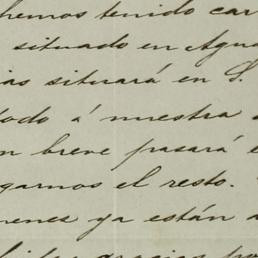 hemos tenido car
situado en Agua
ias situará en S.
todo á nuestra
n breve pasará é
garnos el resto.
menes ya están
gracias po